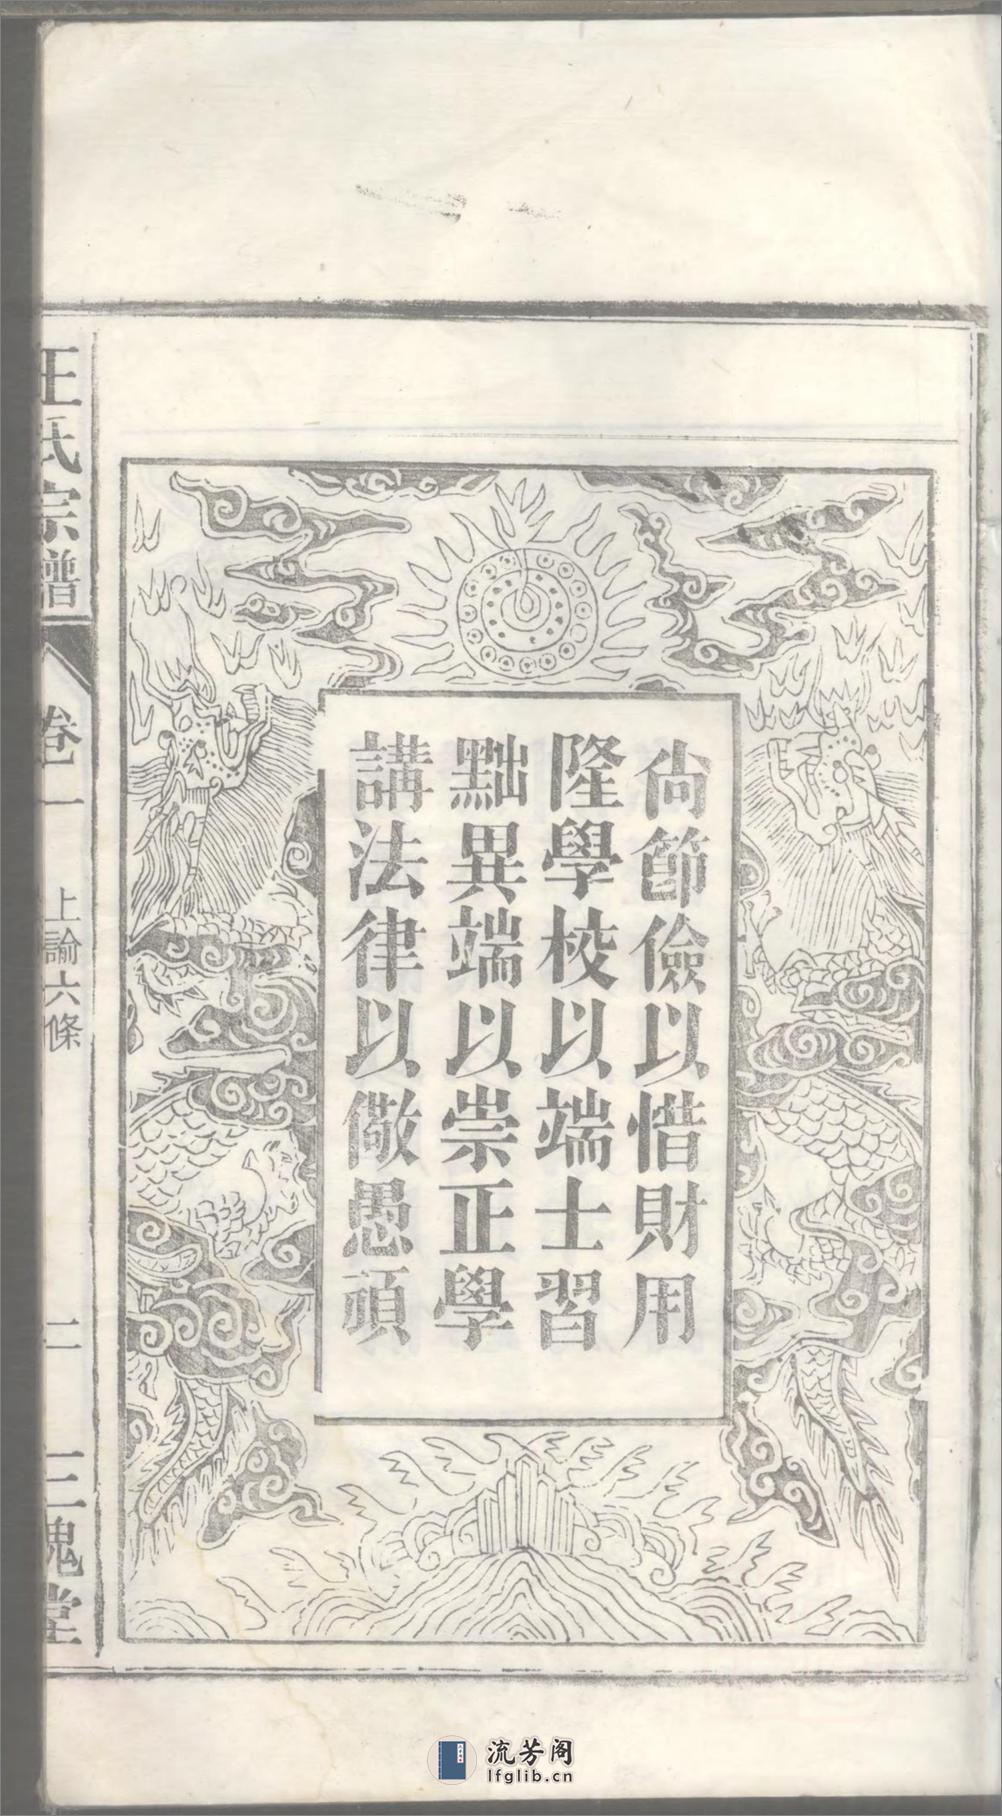 尙節儉以惜財用
隆學校以端士習
黜異端以崇正學
講法律以儆愚頑
王氏宗譜
卷一
上諭六條
二
三槐堂
流芳阁
lfglib.cn